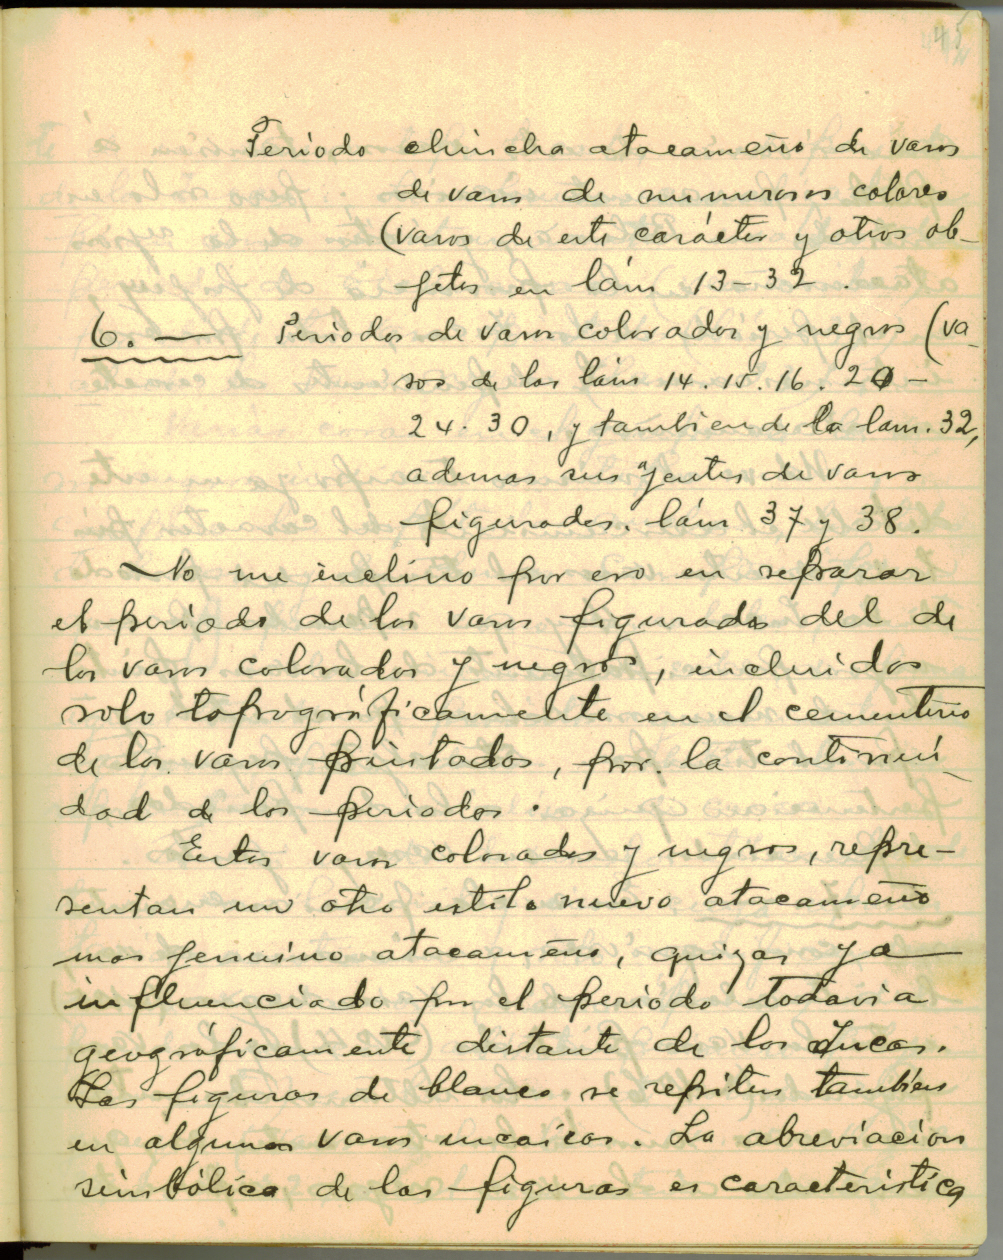 45
Periodo chincha atacameño de vasos
de vasos de numerosos colores
(vasos de este carácter y otros ob-
jetos en lám 13-32.
6. — Periodos de vasos colorados y negros (va-
sos de las lám 14. 15. 16. 20 -
24. 30, y tambien de la lam. 32,
ademas sus gentes de vasos
figurados. lám 37 y 38.
No me inclino por eso en separar
el periodo de los vasos figurados del de
los vasos colorados y negros, incluidos
solo topográficamente en el cementerio
de los vasos pintados, por la continui-
dad de los periodos.
Estos vasos colorados y negros, repre-
sentan un otro estilo nuevo atacameño
mas genuino atacameño, quizas ya
influenciado por el periodo todavia
geográficamente distante de los Incas.
Las figuras de blanco se repiten tambien
en algunos vasos incaicos. La abreviacion
simbólica de las figuras es caracteristica